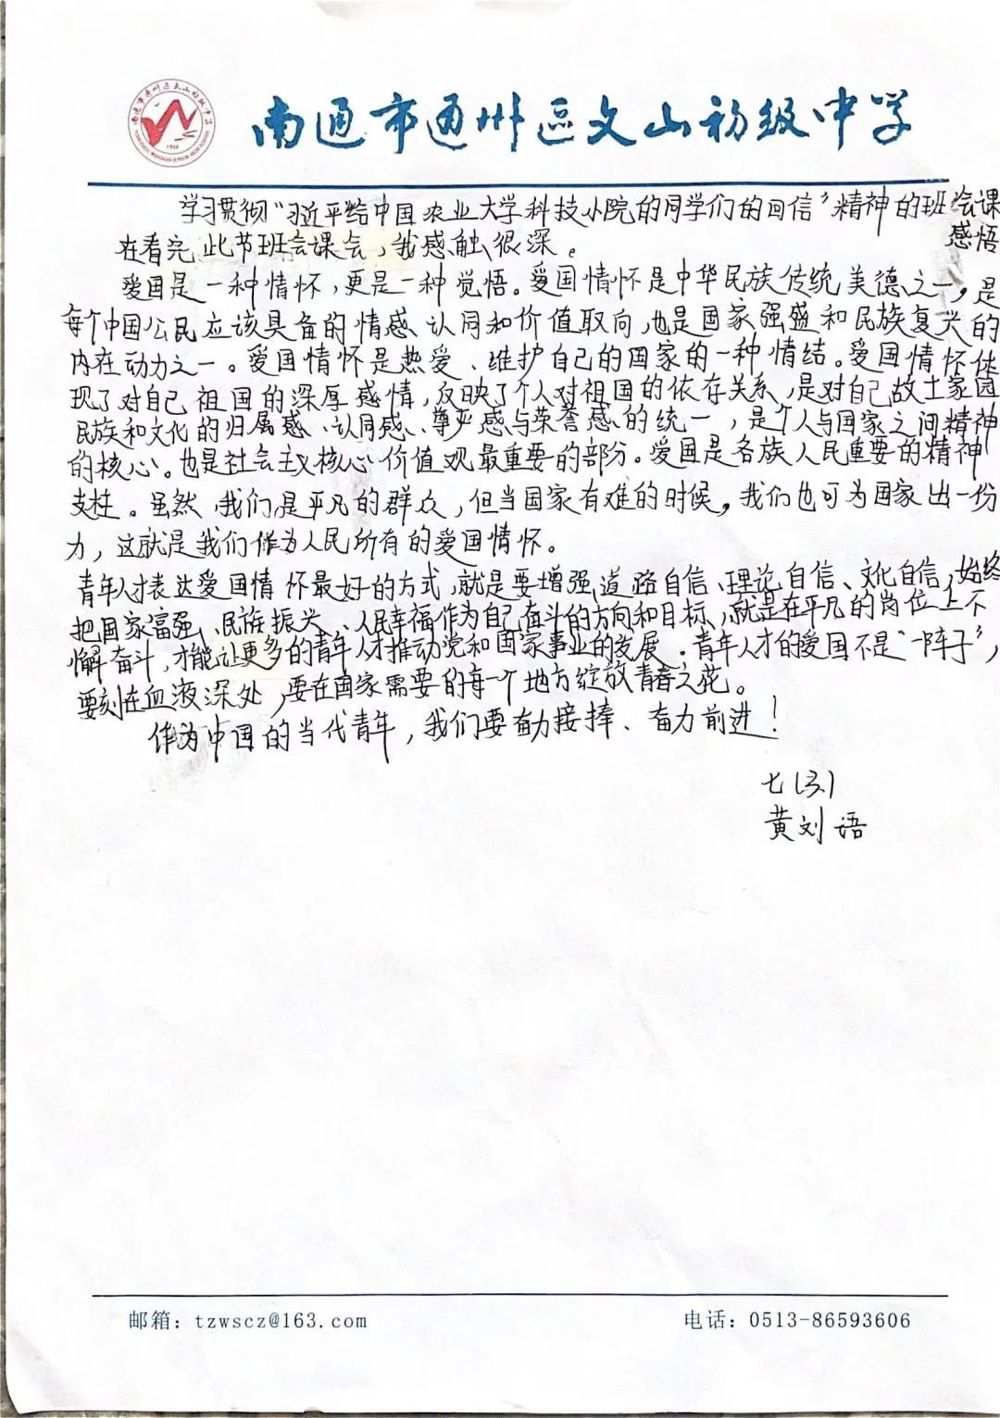 南通市通州区文山初级中学
1968
学习贯彻“习近平给中国农业大学科技小院的同学们的回信”精神的班会课
感悟
在看完此节班会课会,我感触很深。
爱国是一种情怀,更是一种觉悟。爱国情怀是中华民族传统美德之一,是
每个中国公民应该具备的情感、认同和价值取向,也是国家强盛和民族复兴的
内在动力之一。爱国情怀是热爱、维护自己的国家的一种情结。爱国情怀体
现了对自己祖国的深厚感情,反映了个人对祖国的依存关系,是对自己故土家园
民族和文化的归属感、认同感、尊严感与荣誉感的统一,是个人与国家之间精神
的核心。也是社会主义核心价值观最重要的部分。爱国是各族人民重要的精神
支柱。虽然,我们是平凡的群众,但当国家有难的时候,我们也可为国家出一份
力,这就是我们作为人民所有的爱国情怀。
青年人才表达爱国情怀最好的方式,就是要增强道路自信、理论自信、文化自信,始终
把国家富强、民族振兴、人民幸福作为自己奋斗的方向和目标,就是在平凡的岗位上不
懈奋斗,才能让更多的青年人才推动党和国家事业的发展。青年人才的爱国不是“一阵子”,
要刻在血液深处,要在国家需要的每一个地方绽放青春之花。
作为中国的当代青年,我们要奋力接捧、奋力前进!
七(3)
黄刘语
邮箱: tzwscz@163.com
电话: 0513-86593606